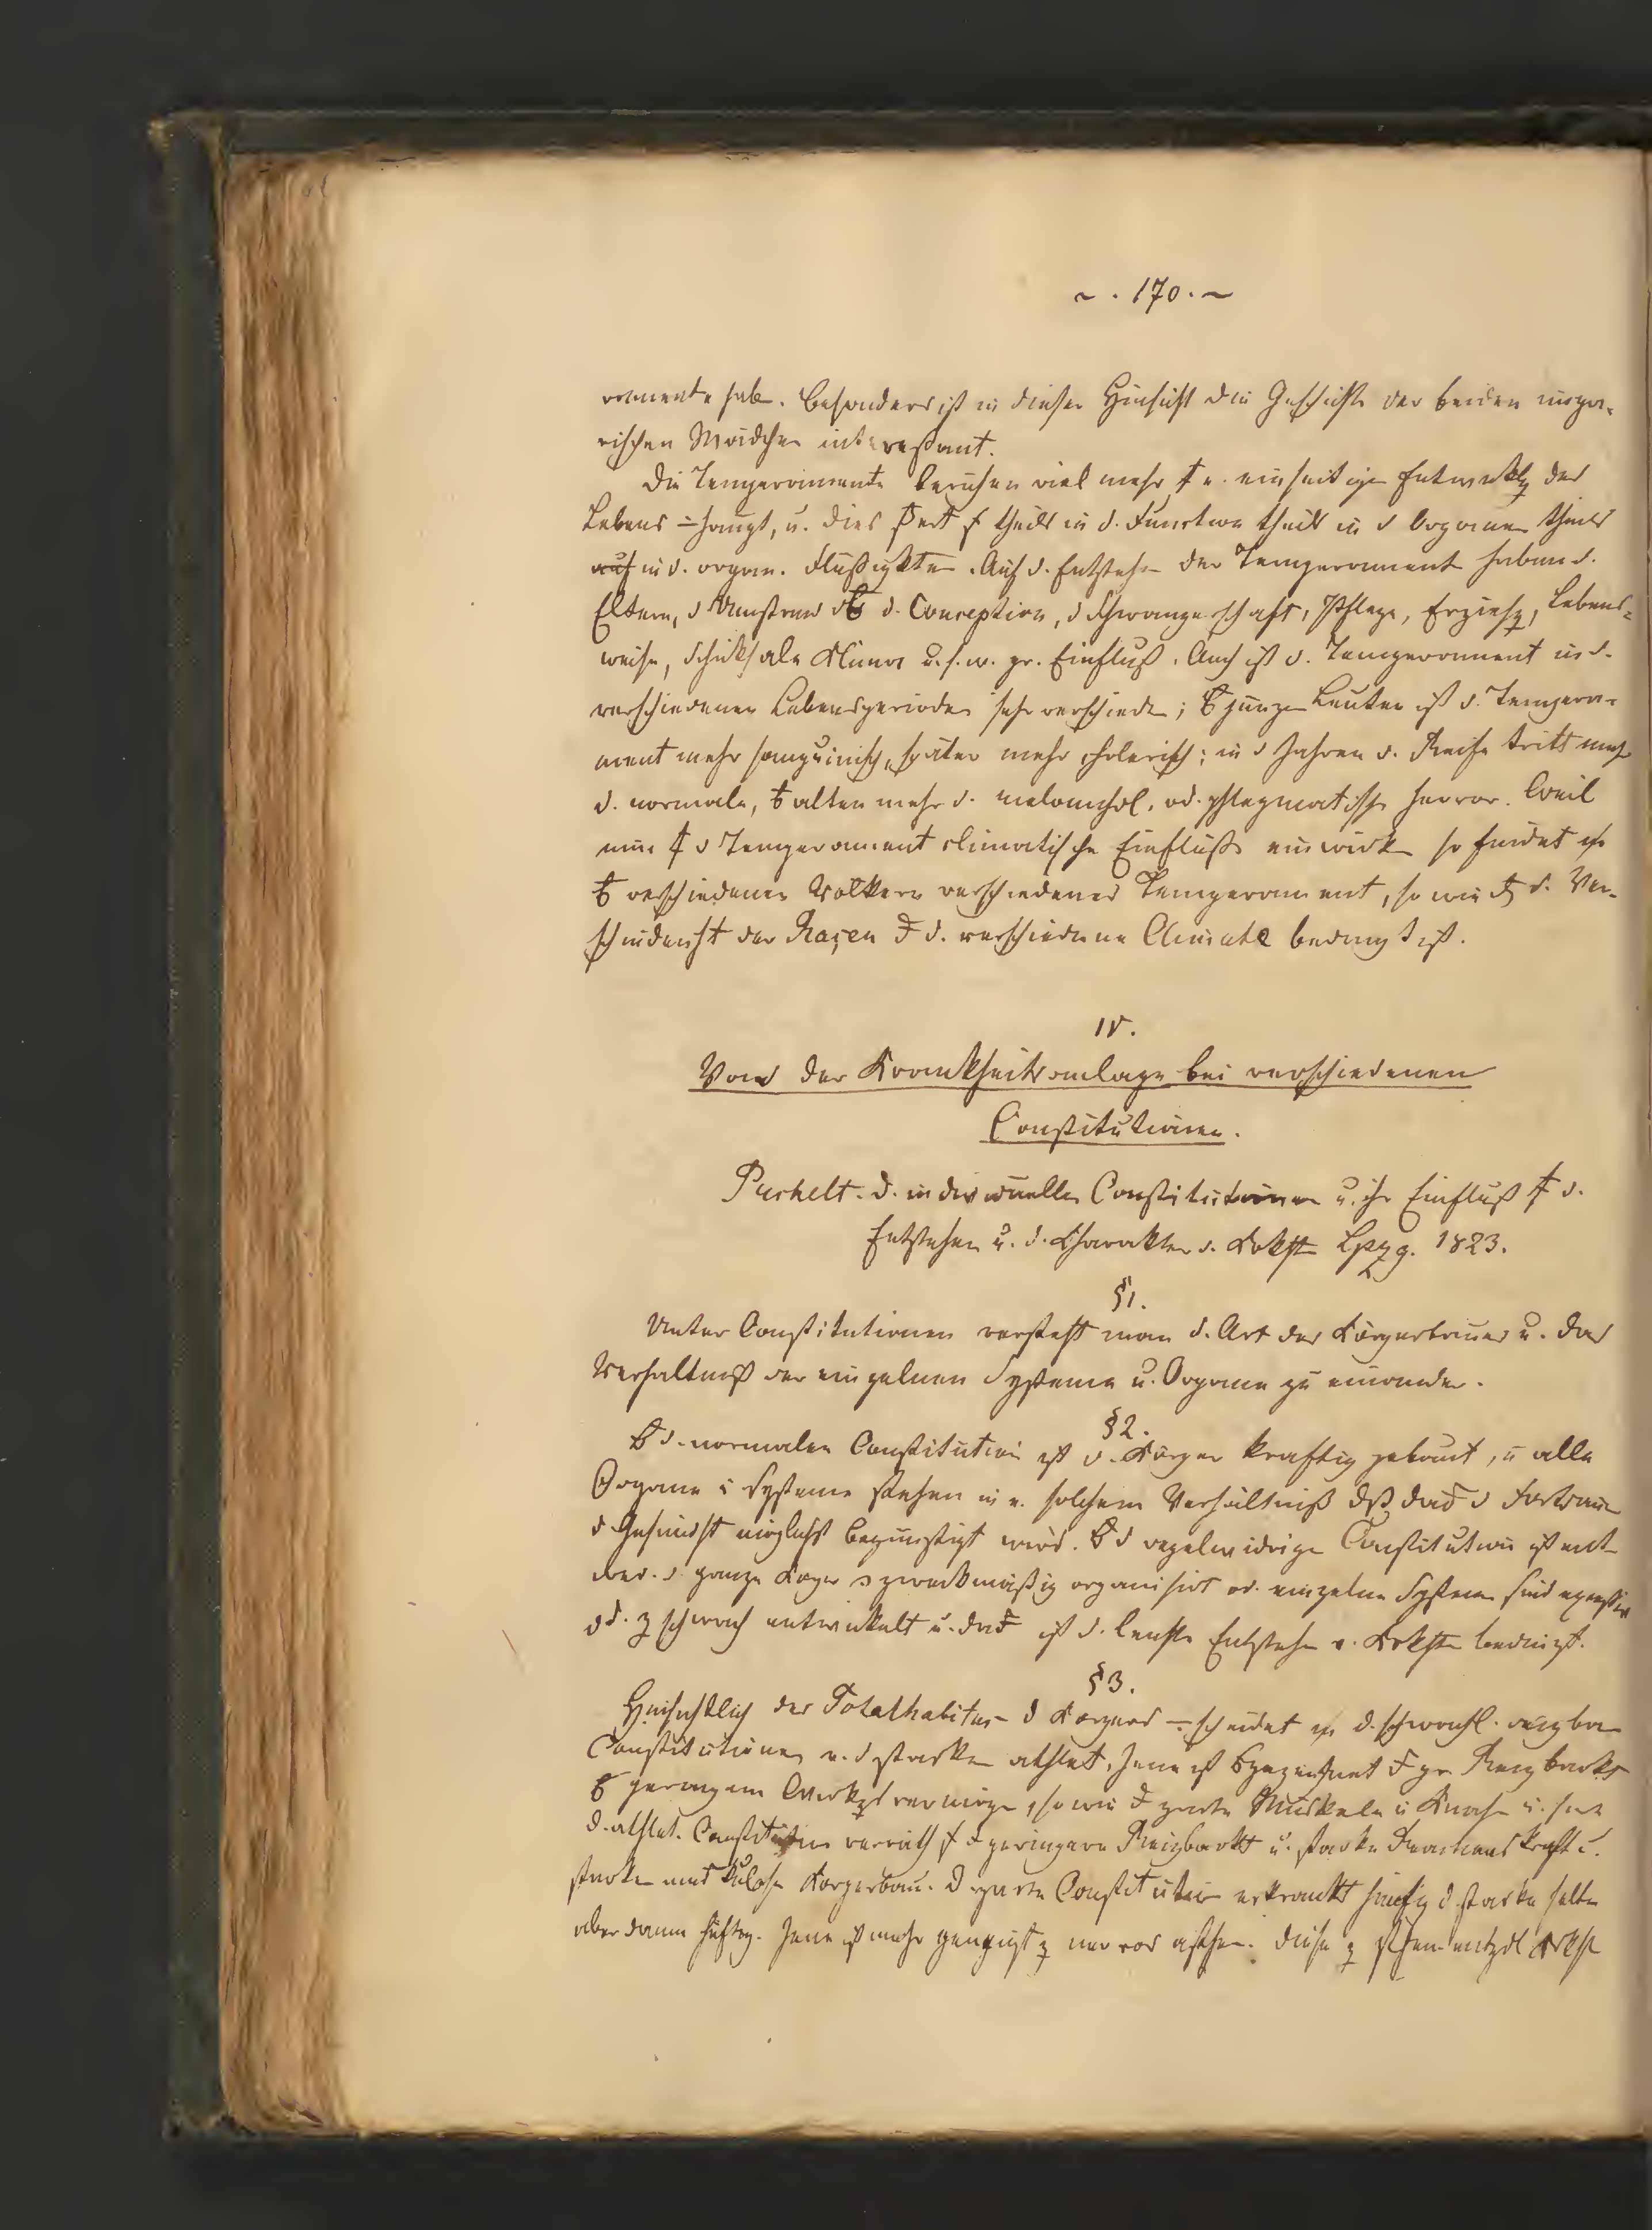 ~ . 170 . ~
ramente hab. Besonders ist in dieser Hinsicht die Geschichte der beiden unga-
rischen Mädchen interessant.
Die Temperamente beruhen viel mehr e. einseitigen Entwicklg des
Lebens haupt, u. dies theils in d. Function theils in d Organen theils
auf in d. organ. Flüßigkten. Auf d. Entstehn der Temperament haben d.
Eltern, d Umstand d. Conception, d Schwangerschaft, Pflege, Erziehg, Lebens-
weise, Schicksale Klima u. s. w. gr. Einfluß. Auch ist d. Temperament in d.
verschiedenen Lebensperioden sehr verschieden; jungen Leuten ist d. Tempera-
ment mehr sanguinisch, später mehr cholerisch; in d Jahren d. Reife tritt mehr
d. normale, alten mehr d. melanchol. od. phlegmatische hervor. Weil
nun d Temperament climatische Einfluße einwirken so findet
verschiedenen Völkern verschiedenes Temperament, so wie d. Ver-
schiedenht der Raçen d. verschiedene Climate bedingt ist.
IV.
Von der Krankheitsanlage bei verschiedenen
Constitutionen.
Puchelt. d. individuellen Constitutionen u. ihr Einfluß d.
Entstehen u. d. Charakter d. Krkhtn Lpzg. 1823.
§1.
Unter Constitutionen versteht man d. Art des Körperbaues u. das
Verhältniß der einzelnen Systeme u. Organe zu einander.
§2.
d. normalen Constitution ist d. Körper kraftig gebaut, u alle
Organe u Systeme stehen in e. solchem Verhältniß dß d Fortdauer
d Gesundht möglichst begünstigt wird. d regelwidrige Constitution ist ent-
wed. d. ganze Körper zweckmäßig organisirt od. einzelne Systeme sind
od. z schwach entwickelt u. ist d. leichte Entstehn v. Krkhtn bedingt.
§3.
Hinsichtlich des Totalhabitus d Körpers scheidet d. schwächl. reizbare
Constitutionen v. d starken athlet. Jene ist gr. Reizbarkt
geringem vermögen, so wie zarte Muskeln u Knochen u.
d. athlet. Constitution verräth geringere Reizbarkt u. starke kraft u.
starken muskulösen Körperbau. D zarte Constitution erkrankt häufig d. starke selten
aber dann heftig. Jene ist mehr geneigt z nervos asthen. diese z sthen. entzdl Krkht